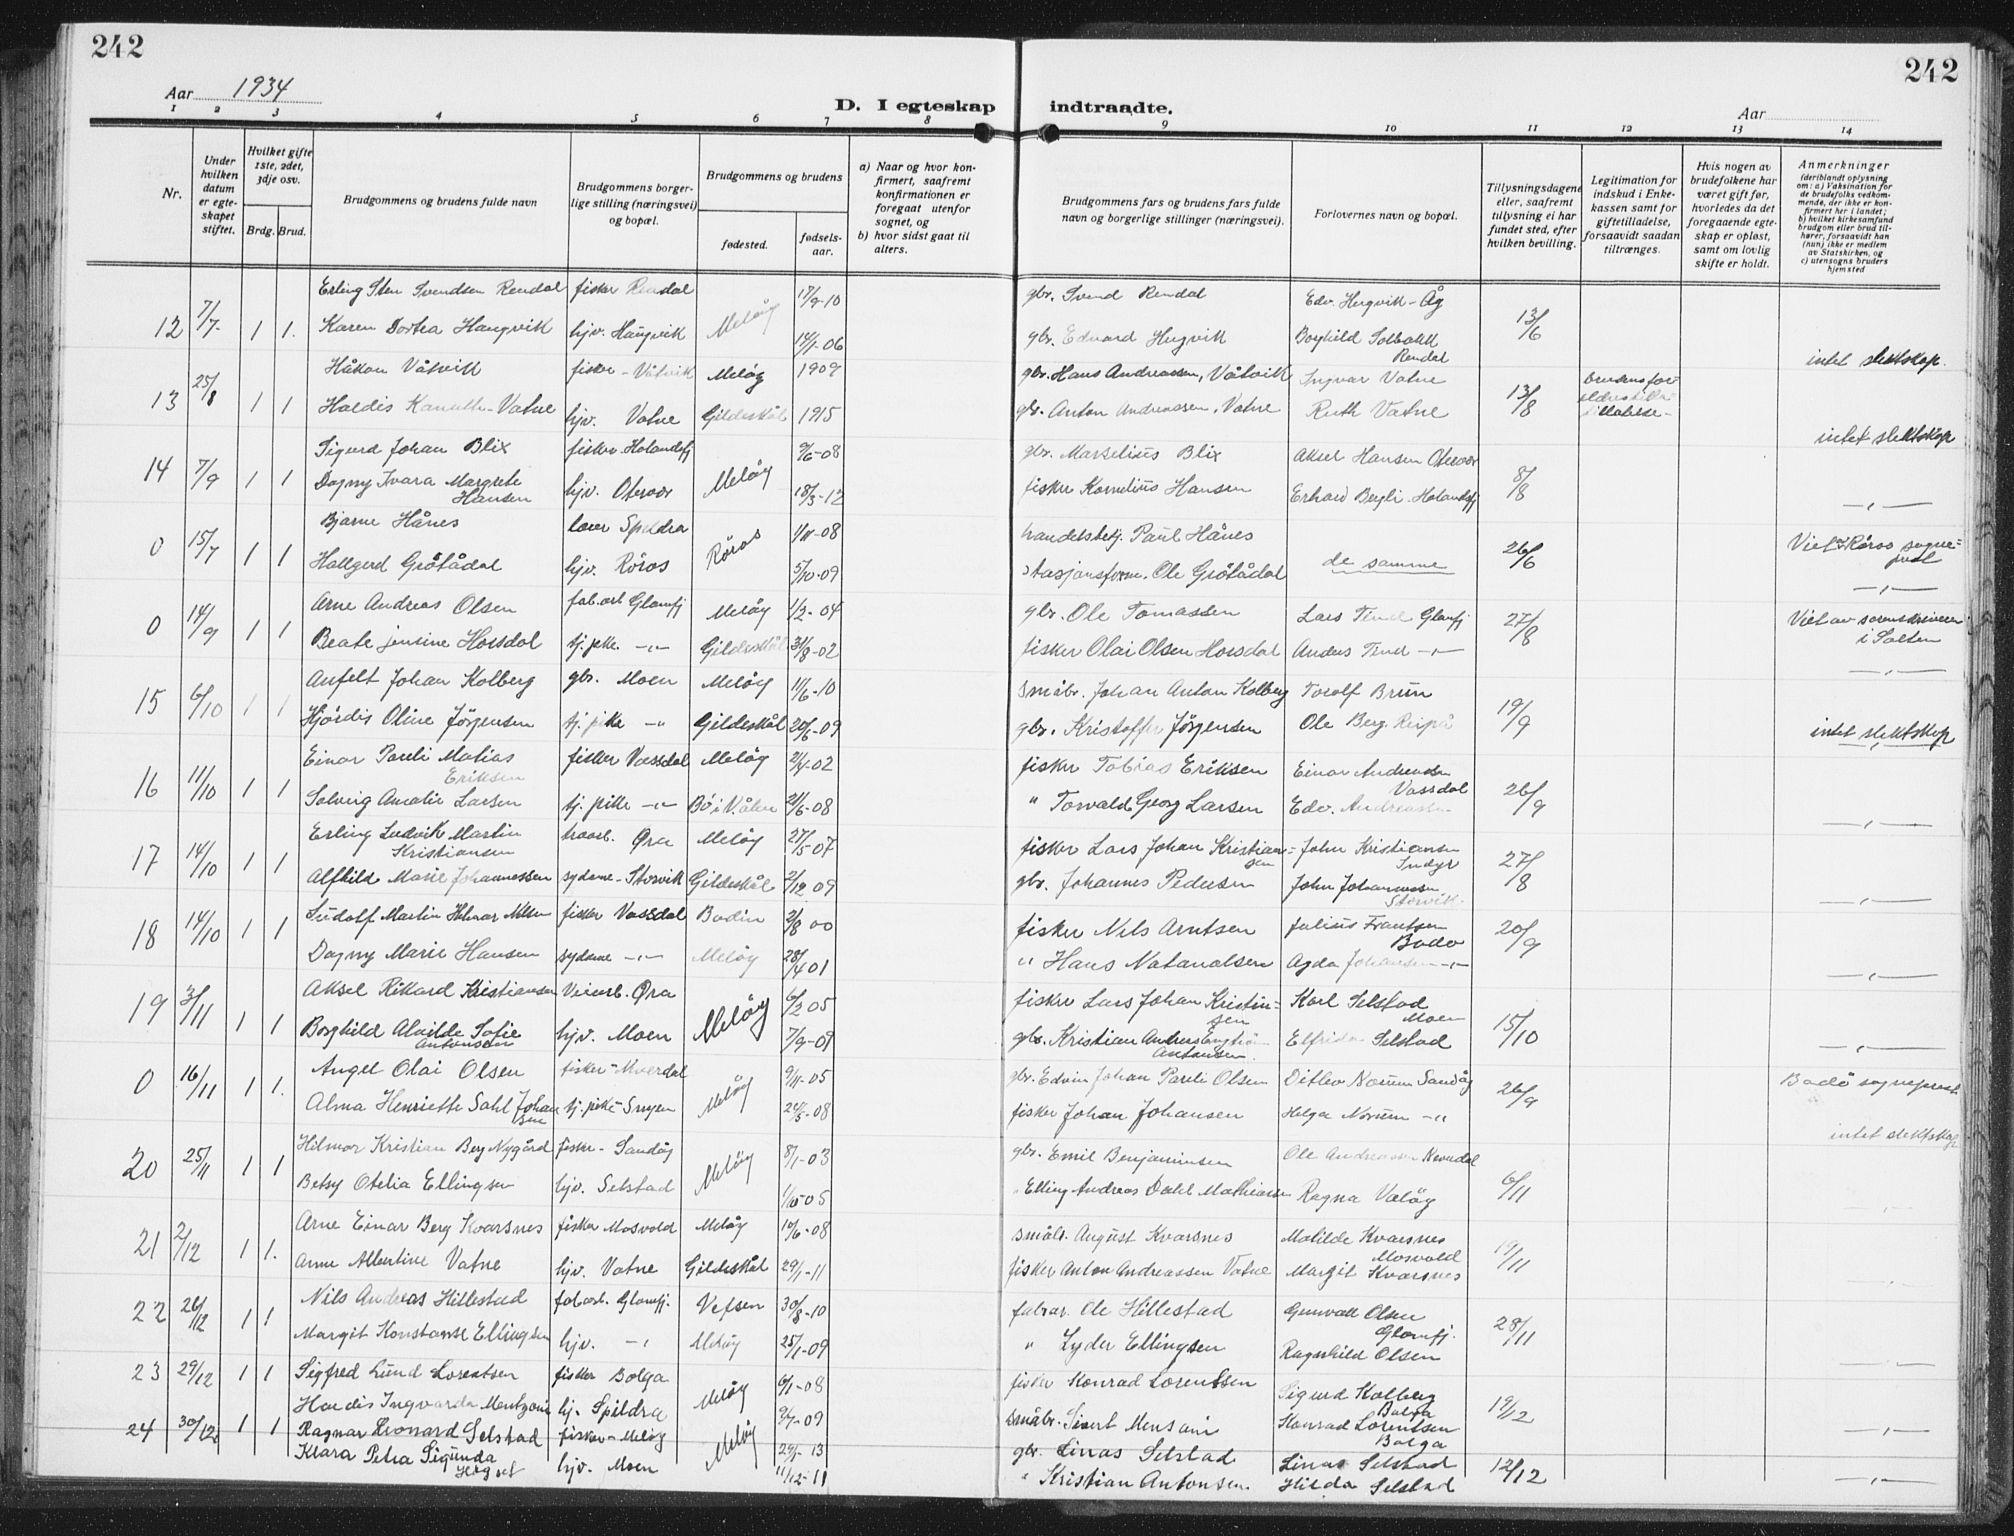 242
242
Aar 1934
D. I egteskap indtraadte.
Aar
1 2 3 4 5 6 7 8 9 10 11 12 13 14
Nr.
Under hvilken datum er egteskapet stiftet.
Hvilket gifte 1ste, 2det, 3dje osv.
Brdg. Brud.
Brudgommens og brudens fulde navn
Brudgommens borgerlige stilling (næringsvei) og bopæl.
Brudgommens og brudens
fødested.
fødselsaar.
a) Naar og hvor konfirmert, saafremt konfirmationen er foregaat utenfor sognet, og
b) hvor sidst gaat til alters.
Brudgommens fars og brudens fars fulde navn og borgerlige stillinger (næringsvei).
Forlovernes navn og bopæl.
Tillysningsdagene eller, saafremt tillysning ei har fundet sted, efter hvilken bevilling.
Legitimation for indskud i Enkekassen samt for giftetilladelse, forsaavidt saadan tiltrænges.
Hvis nogen av brudefolkene har været gift før, hvorledes da det foregaaende egteskap er opløst, samt om lovlig skifte er holdt.
Anmerkninger (deriblandt oplysning om: a) Vaksination for de brudefolks vedkommende, der ikke er konfirmert her i landet; b) hvilket kirkesamfund brudgom eller brud tilhører, forsaavidt han (hun) ikke er medlem av Statskirken, og c) utensogns bruders hjemsted
12 7/7 1 1. Erling Sten Svendsen Rendal fisker Rendal Meløy 17/9-10 gbr. Svend Rendal Edv. Hugvik - Åg 13/6
Karen Dortea Haugvik hjv. Haugvik 14/1-06 gbr. Edvard Hugvik Borghild Solbakk Rendal
13 25/8 1 1 Håkon Våtvik fisker - Våtvik Meløy 1909 gbr. Hans Andreassen, Våtvik Ingvar Vatne 13/8 intet slektskap.
Haldis Vatne hjv. Vatne Gildeskål 1915 gbr. Anton Andreassen, Vatne Ruth Vatne
14 7/9 1 1 Sigurd Johan Blix fisker Holandsfj Meløy 9/6-08 gbr. Marselius Blix Aksel Hansen Otervær 8/8 intet slektskap
Dagny Ivara Margrete Hansen hjv. Otervær 18/3-12 fisker Kornelius Hansen Erhard Bergli Holandsfj -"-
0 15/7 1 1 Bjarne Hånes lærer Spildra Røros 1/11-08 handelsbetj. Paul Hånes de samme 26/6 Viet av Røros sogneprest
Hallgerd Grøtådal hjv. Røros 5/10-09 stasjonsform. Ole Grøtådal -"-
0 14/9 1 1 Arne Andreas Olsen fab.arb Glomfj Meløy 1/2-04 gbr. Ole Tomassen Lars Tend Glomfj 27/8 Viet av sorenskriveren i Salten
Beate Jensine Horsdal tj. pike -"- Gildeskål 31/8-02 fisker Olai Olsen Horsdal Anders Tend -"- -"-
15 6/10 1 1 Anfelt Johan Kolberg gbr. Moen Meløy 11/6-10 småbr. Johan Anton Kolberg Torolf Brun 19/9
Hjördis Oline Jörgensen tj. pike -"- Gildeskål 20/6-09 gbr. Kristoffer Jörgensen Ole Berg Reipå intet slektskap
16 11/10 1 1 Einar Pauli Matias Eriksen fisker Vassdal Meløy 2/4-02 fisker Tobias Eriksen Einar Andreassen Vassdal 26/9
Solveig Amalie Larsen tj. pike -"- Bø i Våler 21/6-08 " Torvald Georg Larsen Edv. Andreassen -"-
17 14/10 1 1 Erling Ludvik Martin Kristiansen Øra Meløy 27/5-07 fisker Lars Johan Kristiansen John Kristiansen Indyr 27/8
Alfhild Marie Johannessen sydame - Storvik Gildeskål 2/12 09 gbr. Johannes Pedersen John Johannessen Storvik -"-
18 14/10 1 1 Ludolf Martin Helmar Nilsen fisker Vassdal Bodin 2/8 00 fisker Nils Arntsen Julius Frantsen Bodø 20/9
Dagny Marie Hansen sydame -"- Meløy 28/4 01 " Hans Natanalsen Agda Johansen -"- -"-
19 3/11 1 1 Aksel Rikard Kristiansen Veiarb. Øra Meløy 6/2 05 fisker Lars Johan Kristiansen Karl Selstad Moen 15/10
Borghild Alvilde Sofie Antonsen hjv. Moen 7/9-09 gbr. Kristian Andreas Antonsen Elfrida Selstad -"-
0 16/11 1 1. Angel Olai Olsen fisker - Meløy 9/11-05 gbr. Edvin Johan Pauli Olsen Ditlev Norum Sandåg 26/9 Bodø sogneprest
Alma Henriette Dahl Johansen tj. pike 24/5-08 fisker Johan Johansen Helga Norum -"-
20 25/11 1 1 Hilmar Kristian Berg Nygård fisker - Sandåg Meløy 8/1-03 gbr. Emil Benjaminsen Ole Andreassen 6/11 intet slektskap
Betsy Otelia Ellingsen hjv. Selstad 1/10-05 " Elling Andreas Dahl Mathiassen Ragna Valøy -"-
21 2/12 1 1. Arne Einar Berg Kvarsnes fisker Mosvold Meløy 10/6-08 småbr. August Kvarsnes Matilde Kvarsnes Mosvold 19/11
Anne Albertine Vatne hjv. Vatne Gildeskål 29/1-11 fisker Anton Andreassen Vatne Margit Kvarsnes
22 26/12 1 1 Nils Andreas Hillestad fab.arb. Glomfj. Vefsen 30/8-10 fabrar. Ole Hillestad Gunvald Olsen Glomfj. 28/11
Margit Konstanse Ellingsen hjv. -"- Meløy 25/1-09 " Lyder Ellingsen Ragnhild Olsen -"-
23 29/12 1 1 Sigfred Lund Lorentsen fisker Bolga Meløy 6/1-08 fisker Konrad Lorentsen Sigurd Kolberg Bolga 19/12
Hardis Ingvarda Mentzoni hj. Spildra 9/7-09 småbr. Sivert Mentsoni Konrad Lorentsen Bolga -"-
24 30/12 1 1 Ragnar Leonard Selstad fisker - Meløy Meløy 29/1-13 gbr. Linas Selstad Linas Selstad 12/12
Klara Petra Sigunda hjv. Moen 11/12-11 " Kristian Antonsen. Hilda Selstad -"-